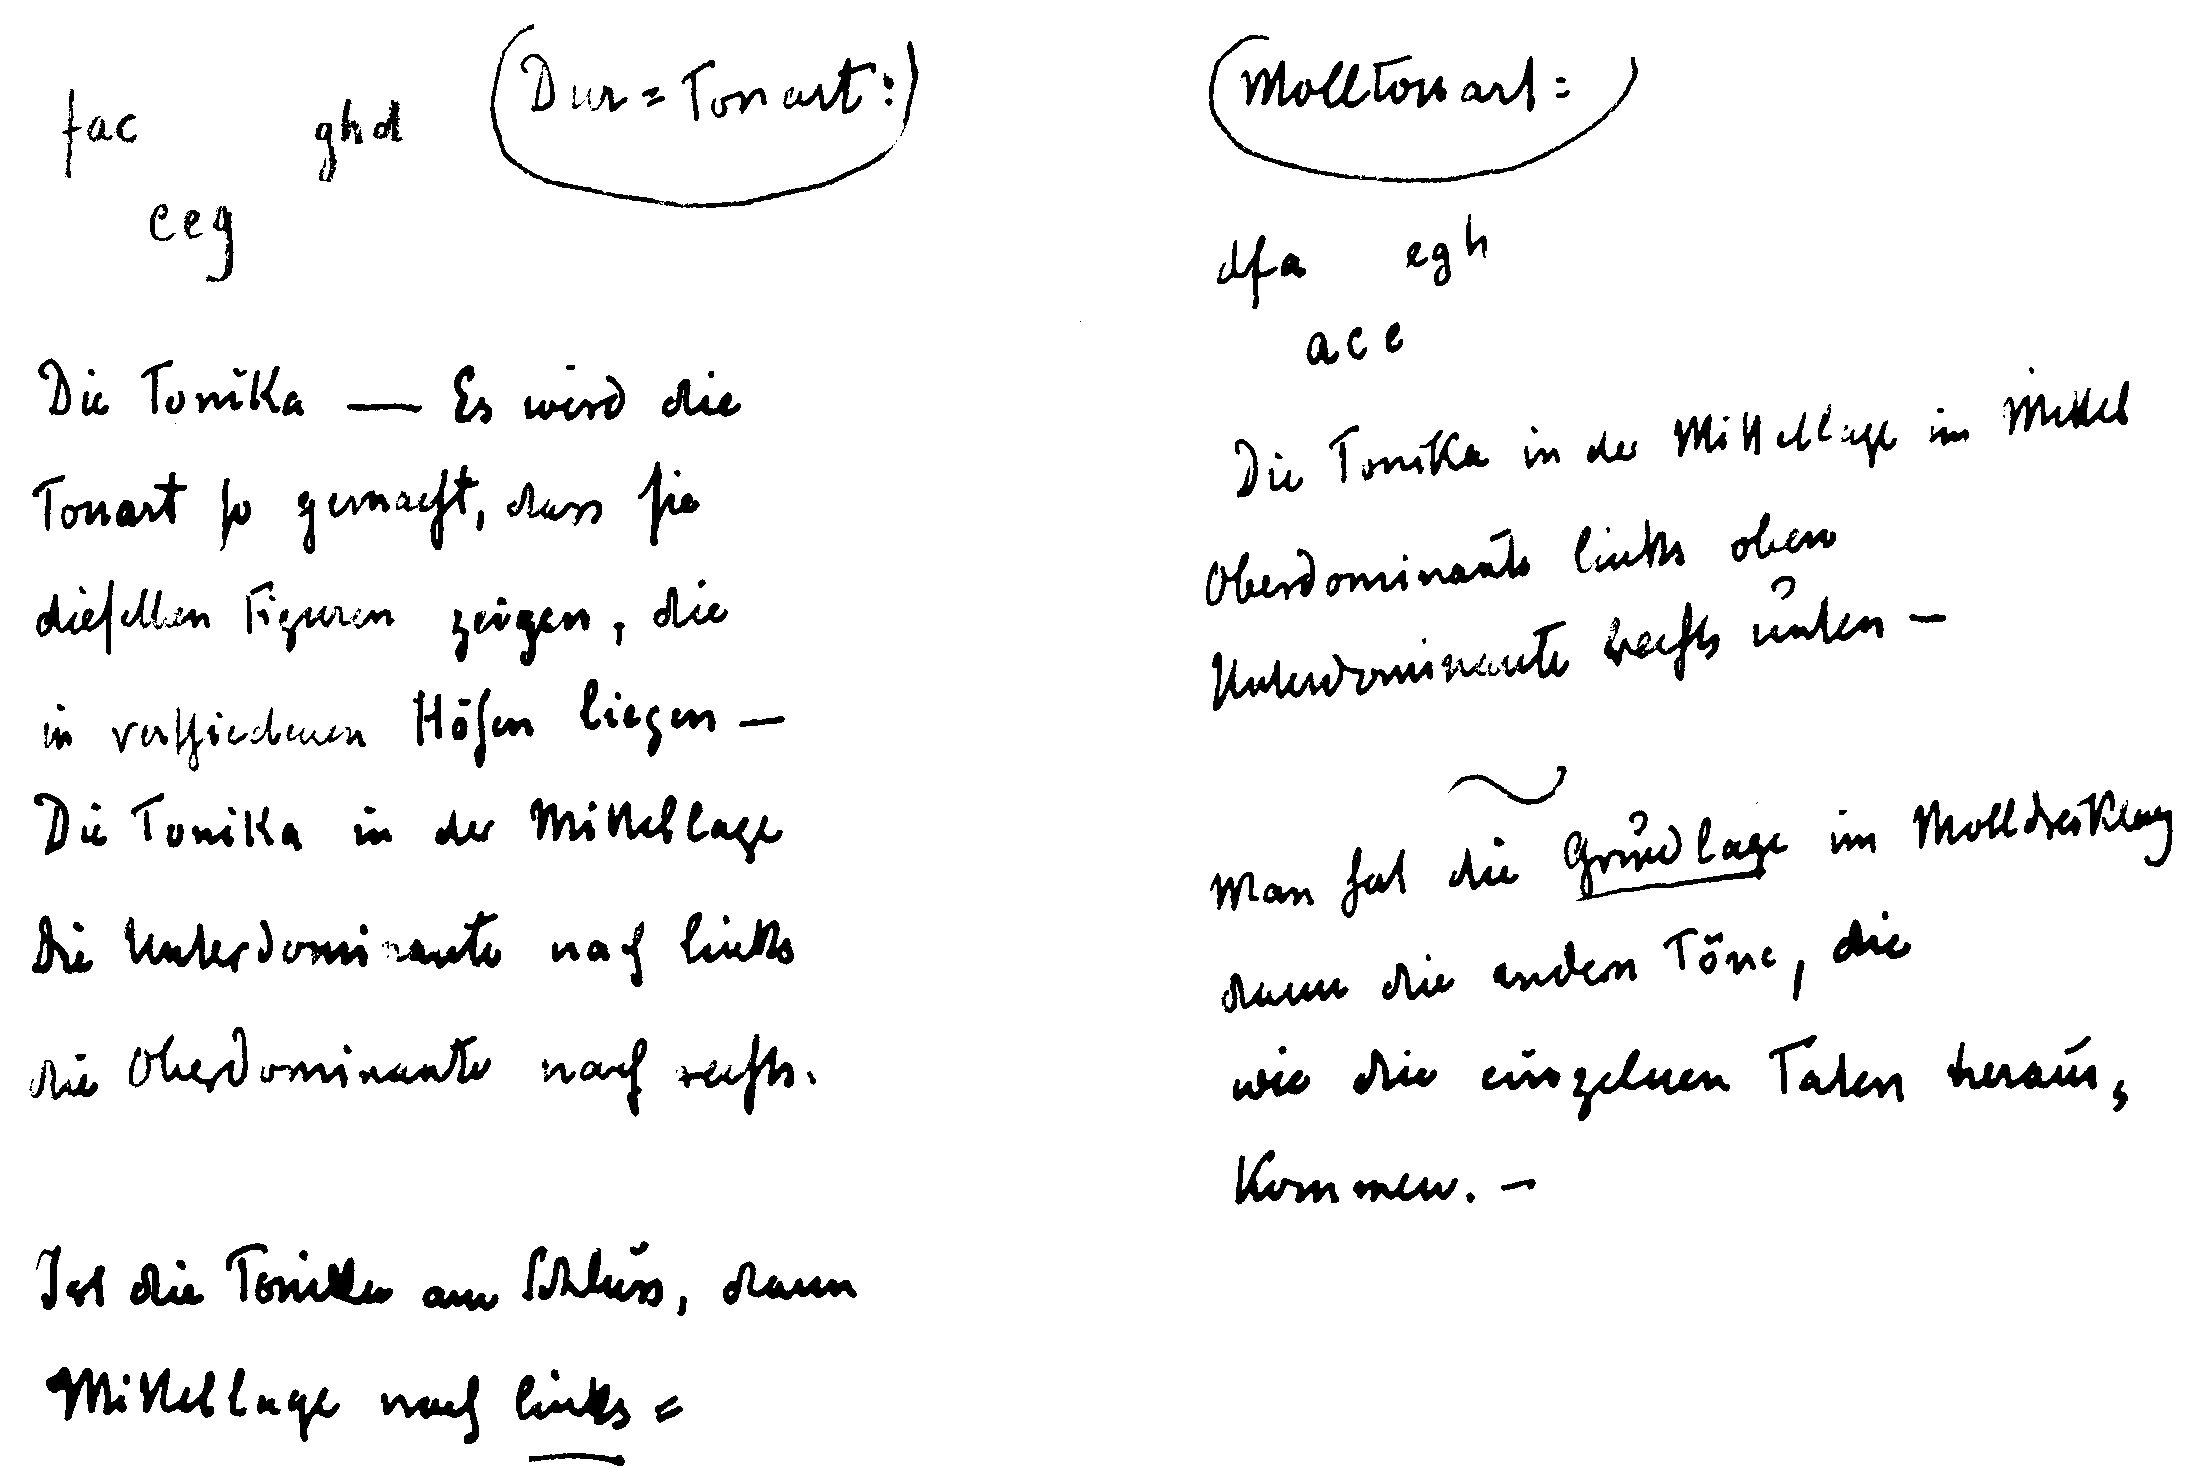 fac ghd (Dur=Tonart:)
ceg
Die Tonika — Es wird die
Tonart so gemacht, dass sie
dieselben Figuren zeigen, die
in verschiedenen Höhen liegen —
Die Tonika in der Mittellage
Die Unterdominante nach links
die Oberdominante nach rechts.
Ist die Tonika am Schluss, dann
Mittellage nach links =
(Molltonart=)
dfa egh
ace
Die Tonika in der Mittellage im Mittel
Oberdominante links oben
Unterdominante rechts unten —
Man hat die Grundlage im Molldreiklang
dann die andern Töne, die
wie die einzelnen Taten heraus,
kommen. —